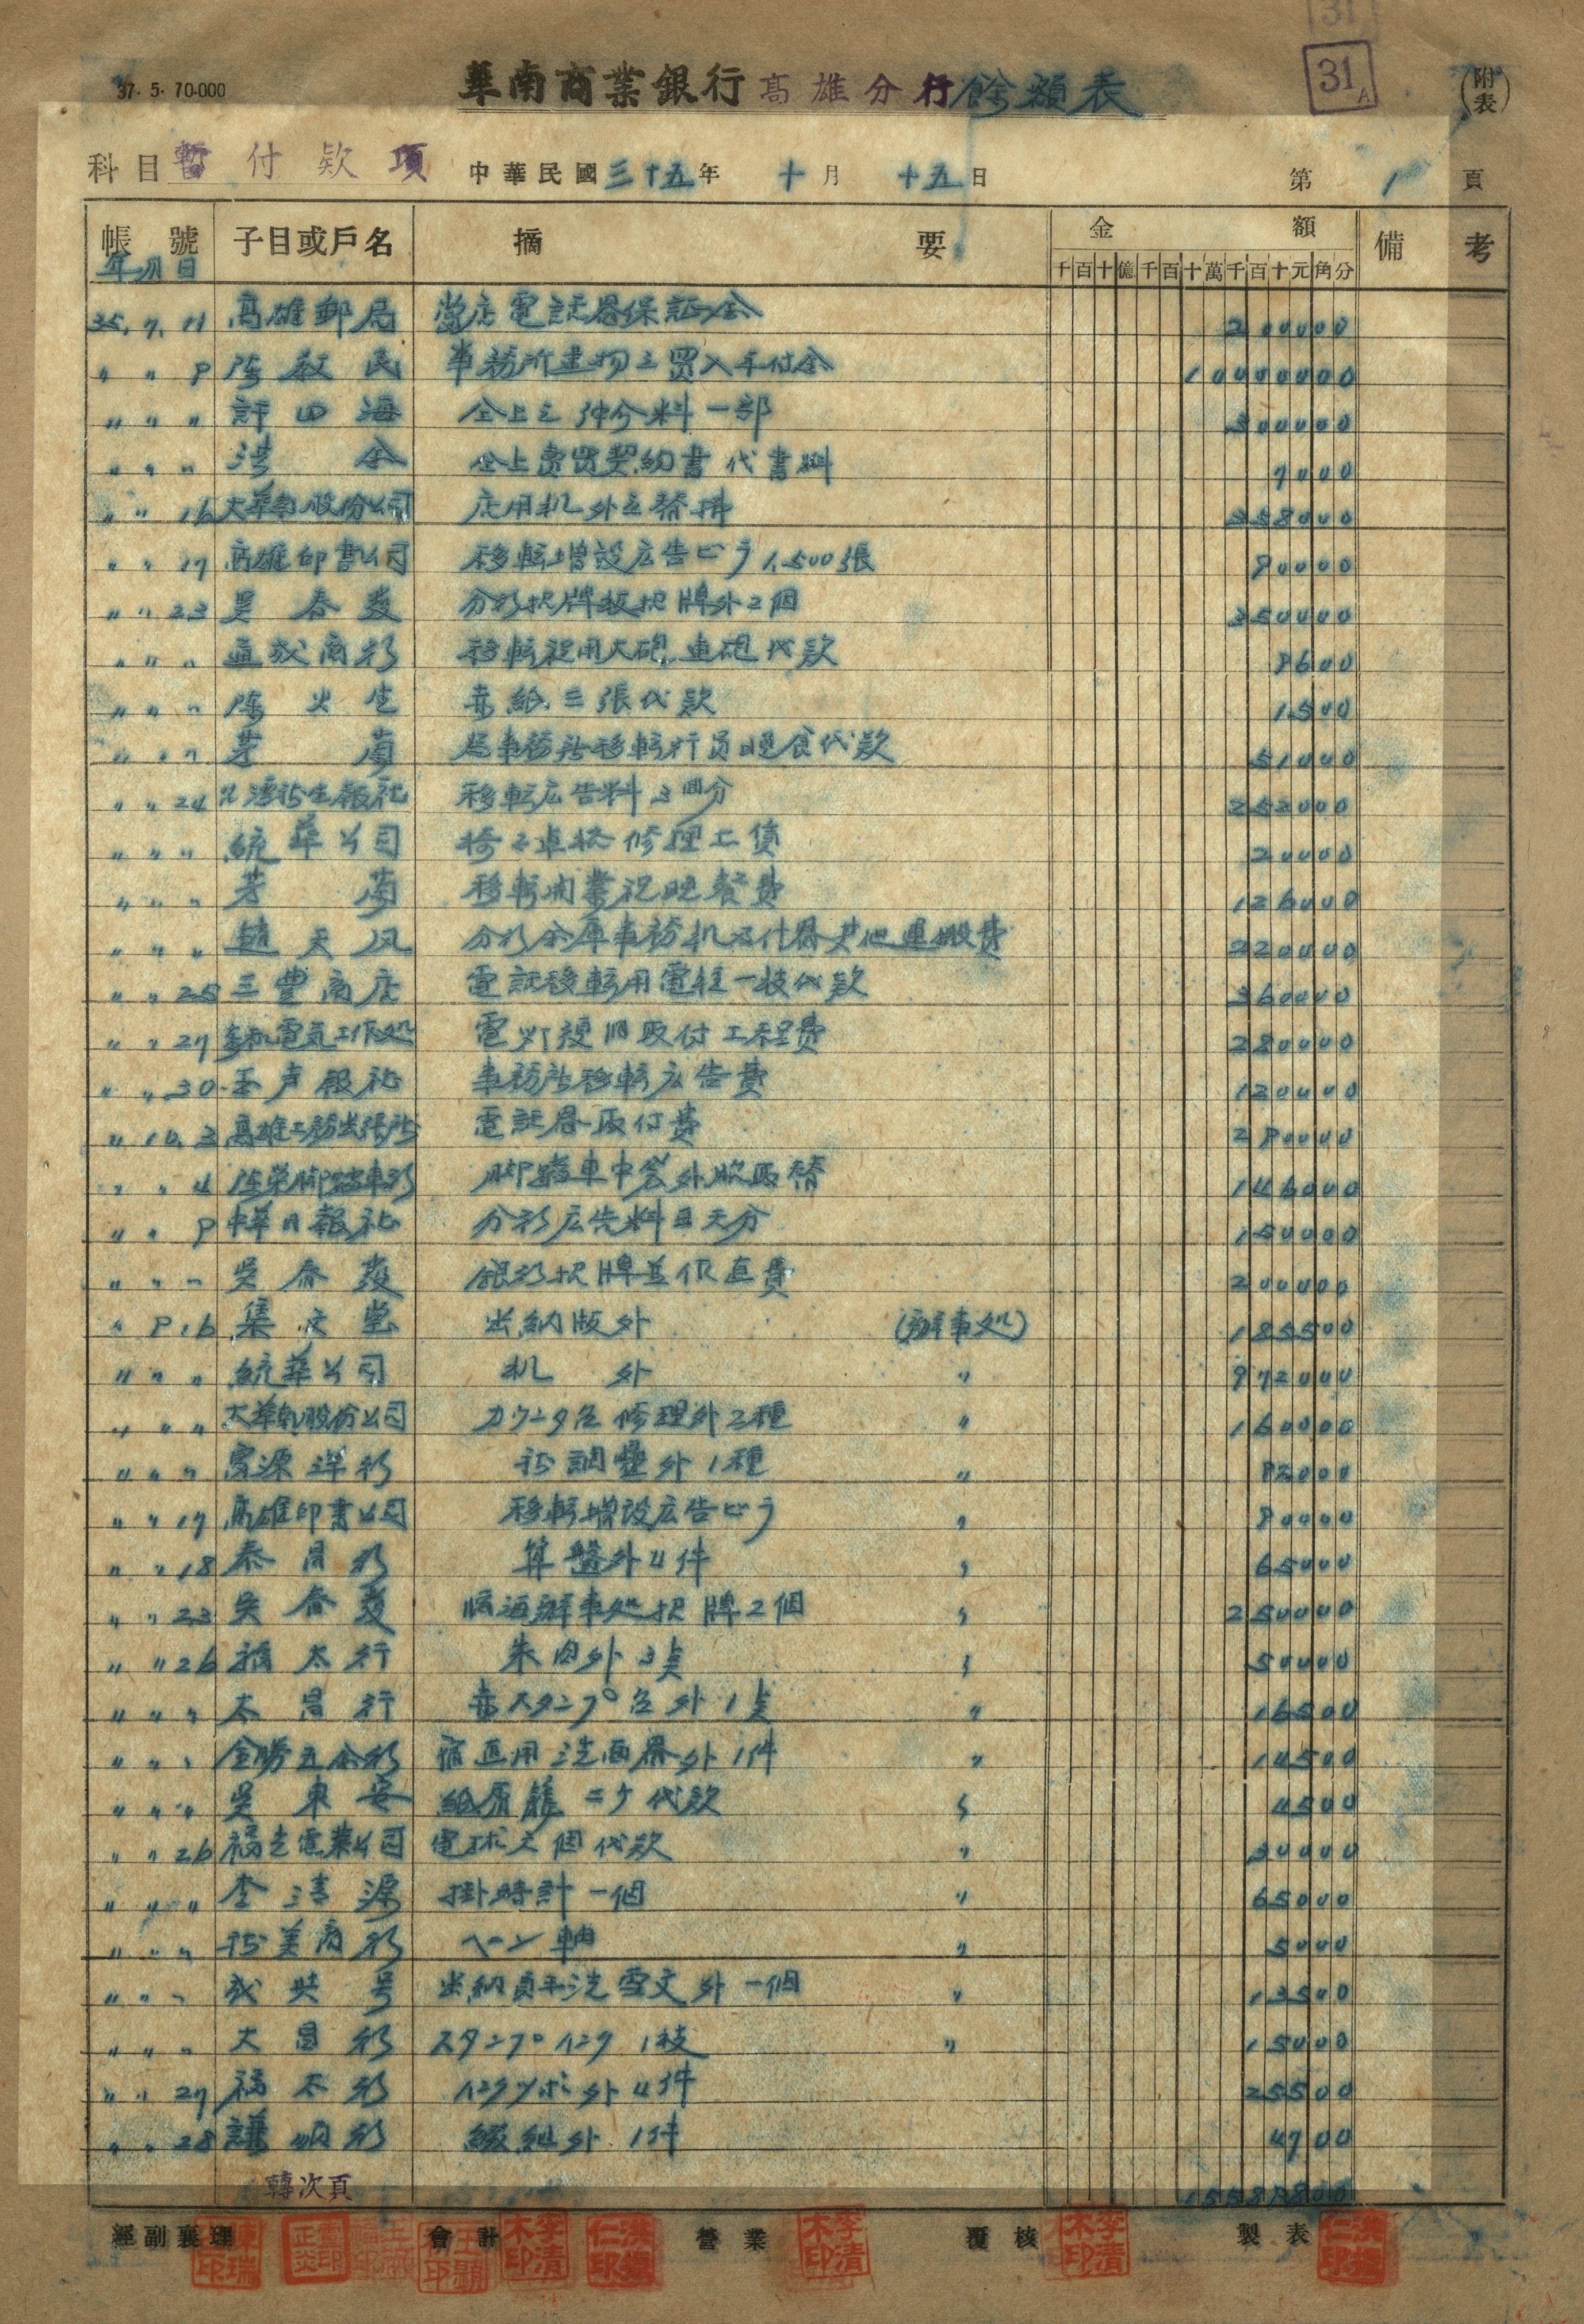 31
37. 5. 70.000
華南商業銀行高雄分行餘額表
31A
(附表)
科目 暫付款項 中華民國三十五年 十月 十五日 第 1 頁
帳號 子目或戶名 摘要 金額 備考
年月日 千百十億千百十萬千百十元角分
35. 9. 11 高雄郵局 當店電話器保証金 200000
〃 〃 9 陳啟民 事務所建物之買入手付金 10000000
〃 〃 〃 許四海 仝上之仲介料一部 300000
〃 〃 〃 洪 仝上賣買契約書代書料 7000
〃 〃 16 股份公司 店用机外 358000
〃 〃 17 高雄印書公司 移転增設広告ビラ1,500張 90000
〃 〃 23 吳春發 分行招牌板招牌外2個 350000
〃 〃 〃 商行 移転祝用大砲、連砲代款 9600
〃 〃 〃 陳火生 赤紙三張代款 1500
〃 〃 〃 事務所移転行員晚食代款 51000
〃 〃 24 新生報社 移転広告料3回分 252000
〃 〃 〃 統華公司 椅子卓 修理工賃 20000
〃 〃 〃 移転開業祝晚餐費 126000
〃 〃 〃 趙天风 分行金庫事務机及什器其他運搬費 220000
〃 〃 25 三豐商店 電話移転用電柱一枝代款 360000
〃 〃 27 電気工作処 電灯復旧取付工程費 280000
〃 〃 30 声報社 事務所移転広告費 120000
〃 10. 3 高雄工務出張所 電話器取付費 290000
〃 〃 4 陳榮脚踏車行 脚踏車中袋外胎取替 146000
〃 〃 9 中華日報社 分行広告料五天分 150000
〃 〃 〃 吳春發 銀行招牌並 費 200000
〃 9. 16 集文堂 出納版外 (辦事処) 185500
〃 〃 〃 統華公司 机 外 〃 972000
〃 〃 〃 股份公司 カウンタ台修理外2種 〃 160000
〃 〃 〃 源洋行 調疊外1種 〃 92000
〃 〃 17 高雄印書公司 移転增設広告ビラ 〃 90000
〃 〃 18 泰昌行 算盤外4件 〃 65000
〃 〃 23 吳春發 臨海辦事処招牌2個 〃 250000
〃 〃 26 福太行 朱肉外3点 〃 50000
〃 〃 〃 太昌行 赤スタンプ台外1点 〃 16500
〃 〃 〃 金勝五金行 宿直用洗面器外1件 〃 14500
〃 〃 〃 吳東安 紙屑籠二ケ代款 〃 4500
〃 〃 26 福 電業公司 電球 個代款 〃 30000
〃 〃 〃 李清源 掛時計一個 〃 65000
〃 〃 〃 美商行 ペン軸 〃 5000
〃 〃 〃 成 号 出納員手洗雪文外一個 〃 13500
〃 〃 〃 大昌行 スタンプインク1枝 〃 15000
〃 〃 27 福太行 インクツボ外4件 25500
〃 〃 28 謙順行 綴紐外1件 4700
轉次頁 15589800
經副襄理 會計 營業 覆核 製表
李清木印